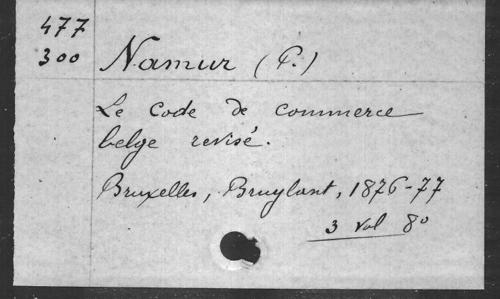 477
300
Namur (P.)
Le Code de commerce
belge revisé.
Bruxelles, Bruylant, 1876-77
3 vol 8º